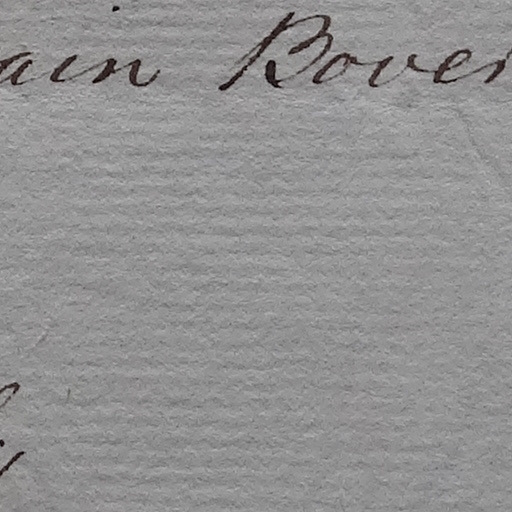 ain Bover